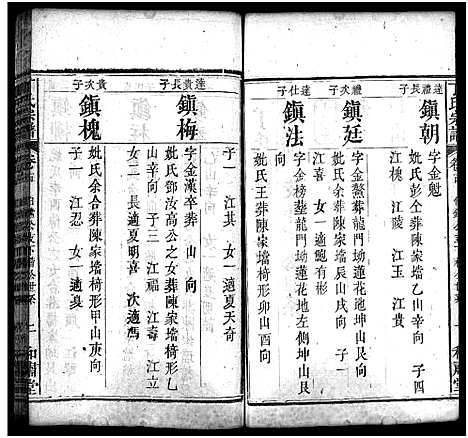 達禮長子
鎮朝
字金魁
妣氏彭仝葬陳家壋乙山辛向 子四
江槐 江陵 江玉 江貴
禮次子
鎮廷
字金鰲葬龍門坳蓮花地坤山艮向
妣氏余葬陳家壋辰山戌向 子一
江喜 女一適鮑有彬
達仕子
鎮法
字金榜塟龍門坳蓮花地左側坤山艮向
妣氏王葬陳家壋椅形卯山酉向
達貴長子
鎮梅
字金漢卒葬 山 向
妣氏鄧汝高公之女葬陳家壋椅形乙
山辛向 子三 江福 江壽 江立
女二 長適夏明喜 次適馮
子一 江其 女一適夏天奇
貴次子
鎮槐
妣氏余合葬陳家壋椅形甲山庚向
子一 江忍 女一適夏